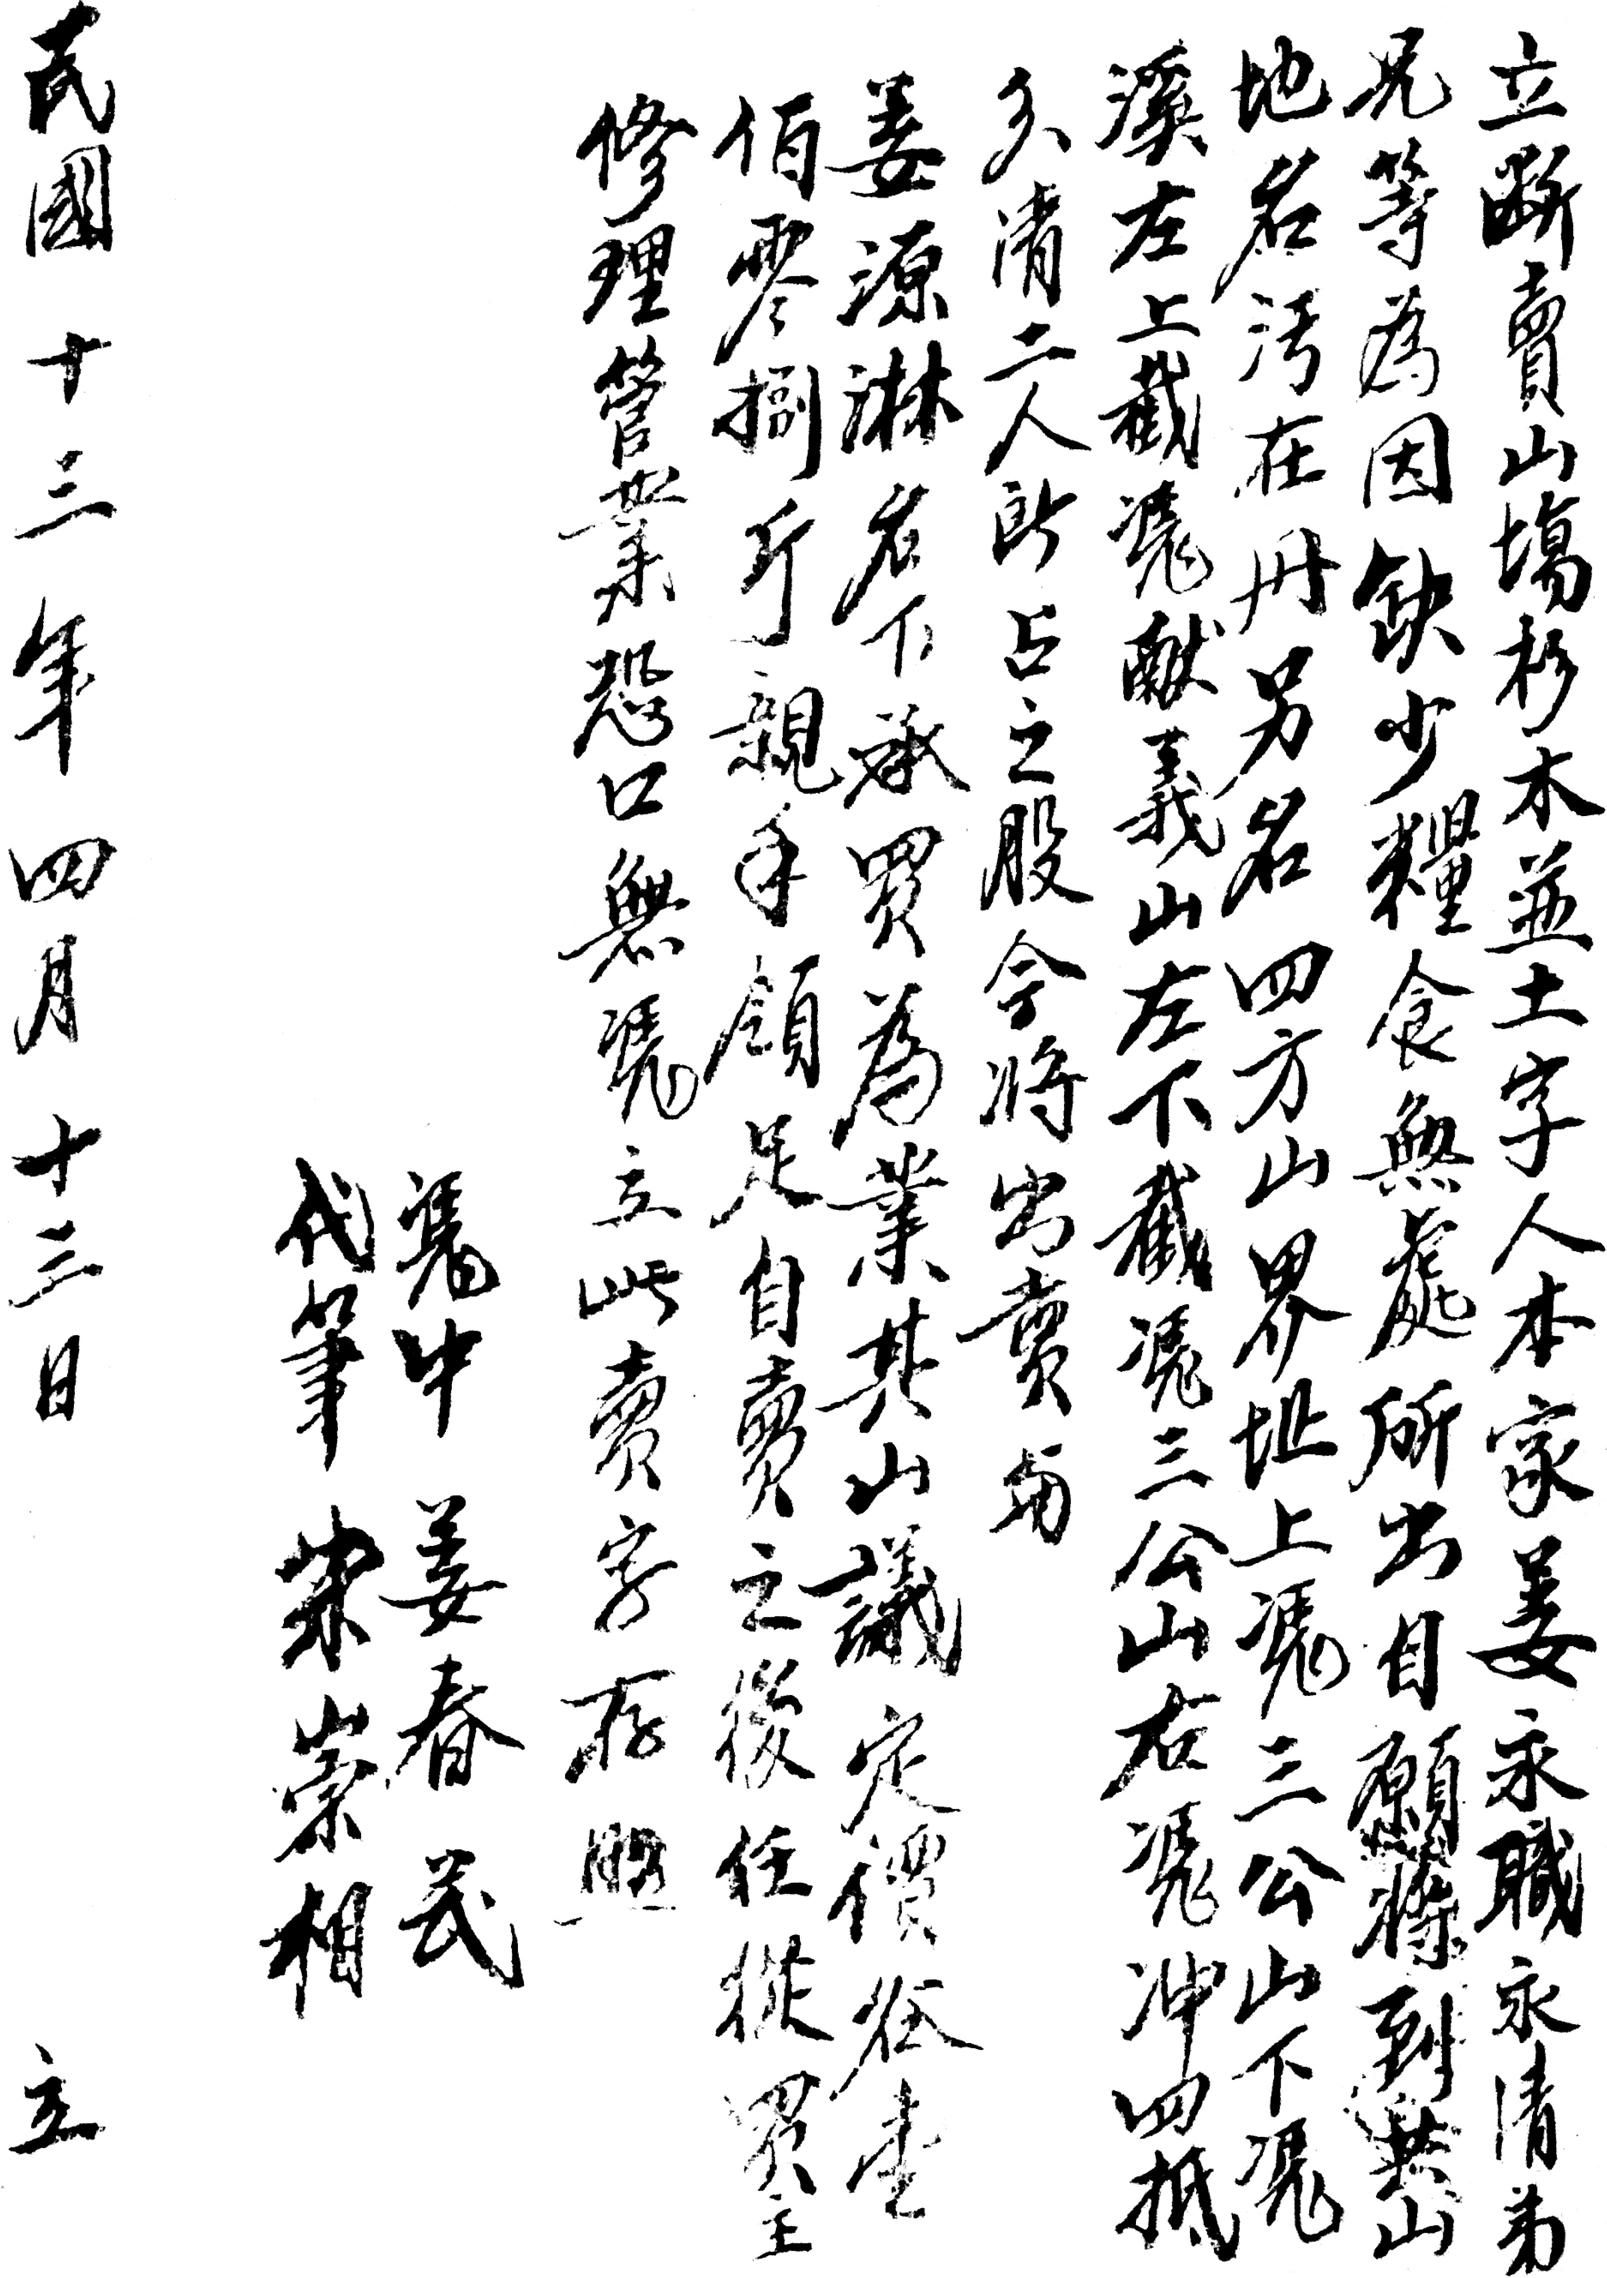 立斷賣山塲杉木並土字人本家姜永職永清弟
兄等為因缺少糧食無處所出自願將到共山
地名汚在冉另名四方山界址上凴三公山下凴
溪左上截凴献義山左下截凴三公山右凴冲四抵
分清二人所占之股今將出賣與
姜源淋名下承買為業其山議定價谷壹
佰零捌斤親手領足自賣之後任從買主
修理管業恐口無凴立此賣字存照
凴中 姜春茂
代筆 宗相
民國十三年四月十三日 立